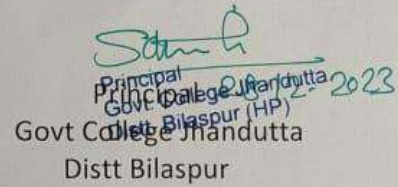 Principal
Govt College Jhandutta
Distt. Bilaspur (HP)
28-12-2023
Principal
Govt College Jhandutta
Distt Bilaspur